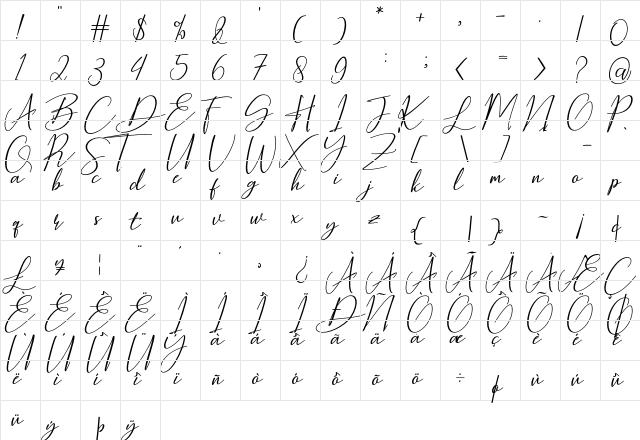 ! " # $ % & ' ( ) * + , - . / 0
1 2 3 4 5 6 7 8 9 : ; < = > ? @
A B C D E F G H I J K L M N O P
Q R S T U V W X Y Z [ \ ] -
a b c d e f g h i j k l m n o p
q r s t u v w x y z { | } ~ ¡ ¢
£ ¥ ¦ ¨ ¿ À Á Â Ã Ä Å Æ Ç
È É Ê Ë Ì Í Î Ï Ð Ñ Ò Ó Ô Õ Ö Ø
Ù Ú Û Ü Ý à á â ã ä å æ ç è é ê
ë ì í î ï ñ ò ó ô õ ö ÷ ø ù ú û
ü ý þ ÿ